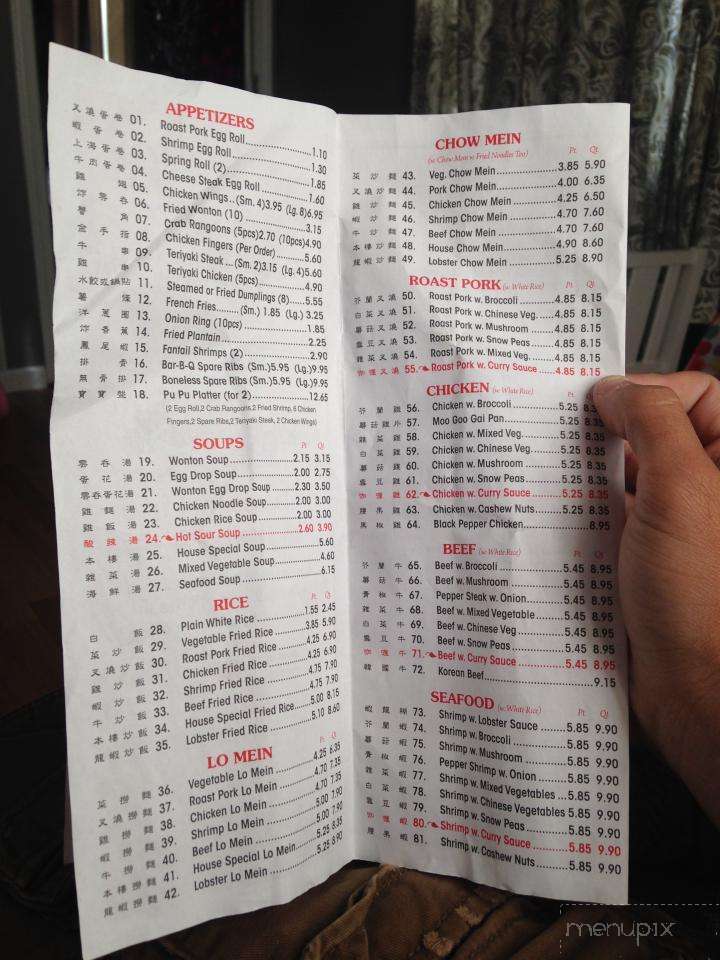 APPETIZERS
叉燒蛋卷 01. Roast Pork Egg Roll..........1.10
蝦蛋卷 02. Shrimp Egg Roll..........1.30
上海蛋卷 03. Spring Roll (2)..........1.85
牛肉蛋卷 04. Cheese Steak Egg Roll..........1.60
雞翅 05. Chicken Wings..(Sm. 4)3.95 (Lg. 8)6.95
炸雲吞 06. Fried Wonton (10)..........3.15
蟹角 07. Crab Rangoons (5pcs)2.70 (10pcs)4.90
金手指 08. Chicken Fingers (Per Order)..........5.60
牛串 09. Teriyaki Steak...(Sm. 2)3.15 (Lg. 4)5.60
雞串 10. Teriyaki Chicken (5pcs)..........4.90
水餃或鍋貼 11. Steamed or Fried Dumplings (8)..........5.55
薯條 12. French Fries..........(Sm.) 1.85 (Lg.) 3.25
洋蔥圈 13. Onion Ring (10pcs)..........1.85
炸香蕉 14. Fried Plantain..........2.25
鳳尾蝦 15. Fantail Shrimps (2)..........2.90
排骨 16. Bar-B-Q Spare Ribs (Sm.)5.95 (Lg.)9.95
無骨排 17. Boneless Spare Ribs (Sm.)5.95 (Lg.)9.95
寶寶盤 18. Pu Pu Platter (for 2)..........12.65
(2 Egg Roll,2 Crab Rangoons,2 Fried Shrimp, 6 Chicken
Fingers,2 Spare Ribs,2 Teriyaki Steak, 2 Chicken Wings)
SOUPS
Pt. Qt.
雲吞湯 19. Wonton Soup..........2.15 3.15
蛋花湯 20. Egg Drop Soup..........2.00 2.75
雲吞蛋花湯 21. Wonton Egg Drop Soup..........2.30 3.50
雞麵湯 22. Chicken Noodle Soup..........2.00 3.00
雞飯湯 23. Chicken Rice Soup..........2.00 3.00
酸辣湯 24. Hot Sour Soup..........2.60 3.90
本樓湯 25. House Special Soup..........5.60
雜菜湯 26. Mixed Vegetable Soup..........4.60
海鮮湯 27. Seafood Soup..........6.15
RICE
Pt. Qt.
白飯 28. Plain White Rice..........1.55 2.45
菜炒飯 29. Vegetable Fried Rice..........3.85 5.90
叉燒炒飯 30. Roast Pork Fried Rice..........4.25 6.90
雞炒飯 31. Chicken Fried Rice..........4.25 6.90
蝦炒飯 32. Shrimp Fried Rice..........4.75 7.90
牛炒飯 33. Beef Fried Rice..........4.75 7.90
本樓炒飯 34. House Special Fried Rice..........5.00 8.15
龍蝦炒飯 35. Lobster Fried Rice..........5.10 8.60
LO MEIN
Pt. Qt.
菜撈麵 36. Vegetable Lo Mein..........4.25 6.35
叉燒撈麵 37. Roast Pork Lo Mein..........4.70 7.35
雞撈麵 38. Chicken Lo Mein..........4.70 7.35
蝦撈麵 39. Shrimp Lo Mein..........5.00 7.90
牛撈麵 40. Beef Lo Mein..........5.00 7.90
本樓撈麵 41. House Special Lo Mein..........5.25 8.35
龍蝦撈麵 42. Lobster Lo Mein..........5.25 8.90
CHOW MEIN
(w. Chow Mein w. Fried Noodles Too)
Pt. Qt.
菜炒麵 43. Veg. Chow Mein..........3.85 5.90
叉燒炒麵 44. Pork Chow Mein..........4.00 6.35
雞炒麵 45. Chicken Chow Mein..........4.25 6.50
蝦炒麵 46. Shrimp Chow Mein..........4.70 7.60
牛炒麵 47. Beef Chow Mein..........4.70 7.60
本樓炒麵 48. House Chow Mein..........4.90 8.60
龍蝦炒麵 49. Lobster Chow Mein..........5.25 8.90
ROAST PORK (w. White Rice)
Pt. Qt.
芥蘭叉燒 50. Roast Pork w. Broccoli..........4.85 8.15
白菜叉燒 51. Roast Pork w. Chinese Veg...........4.85 8.15
蘑菇叉燒 52. Roast Pork w. Mushroom..........4.85 8.15
雪豆叉燒 53. Roast Pork w. Snow Peas..........4.85 8.15
雜菜叉燒 54. Roast Pork w. Mixed Veg...........4.85 8.15
咖喱叉燒 55. Roast Pork w. Curry Sauce..........4.85 8.15
CHICKEN (w. White Rice)
Pt.
芥蘭雞 56. Chicken w. Broccoli..........5.25 8.3
蘑菇雞片 57. Moo Goo Gai Pan..........5.25 8.35
雜菜雞 58. Chicken w. Mixed Veg...........5.25 8.35
白菜雞 59. Chicken w. Chinese Veg...........5.25 8.35
蘑菇雞 60. Chicken w. Mushroom..........5.25 8.35
雪豆雞 61. Chicken w. Snow Peas..........5.25 8.35
咖喱雞 62. Chicken w. Curry Sauce..........5.25 8.35
腰果雞 63. Chicken w. Cashew Nuts..........5.25 8.35
黑椒雞 64. Black Pepper Chicken..........8.95
BEEF (w. White Rice)
Pt. Qt.
芥蘭牛 65. Beef w. Broccoli..........5.45 8.95
蘑菇牛 66. Beef w. Mushroom..........5.45 8.95
青椒牛 67. Pepper Steak w. Onion..........5.45 8.95
雜菜牛 68. Beef w. Mixed Vegetable..........5.45 8.95
白菜牛 69. Beef w. Chinese Veg..........5.45 8.95
雪豆牛 70. Beef w. Snow Peas..........5.45 8.95
咖喱牛 71. Beef w. Curry Sauce..........5.45 8.95
韓國牛 72. Korean Beef..........9.15
SEAFOOD (w. White Rice)
Pt. Qt.
蝦龍糊 73. Shrimp w. Lobster Sauce..........5.85 9.90
芥蘭蝦 74. Shrimp w. Broccoli..........5.85 9.90
蘑菇蝦 75. Shrimp w. Mushroom..........5.85 9.90
青椒蝦 76. Pepper Shrimp w. Onion..........5.85 9.90
雜菜蝦 77. Shrimp w. Mixed Vegetables..........5.85 9.90
白菜蝦 78. Shrimp w. Chinese Vegetables 5.85 9.90
雪豆蝦 79. Shrimp w. Snow Peas..........5.85 9.90
咖喱蝦 80. Shrimp w. Curry Sauce..........5.85 9.90
腰果蝦 81. Shrimp w. Cashew Nuts..........5.85 9.90
menupix